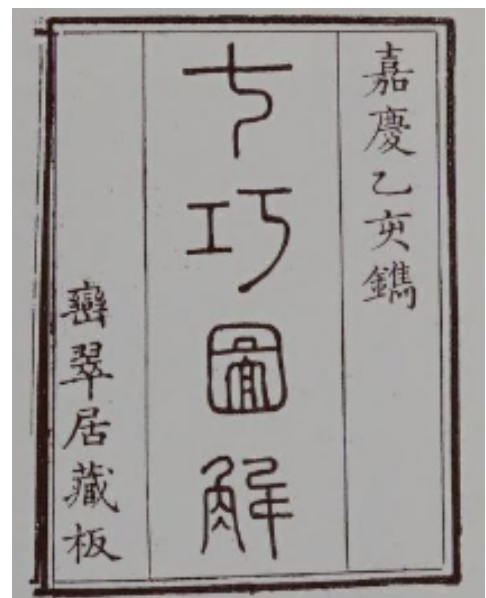 嘉慶乙亥鐫
七巧圖解
巒翠居藏板